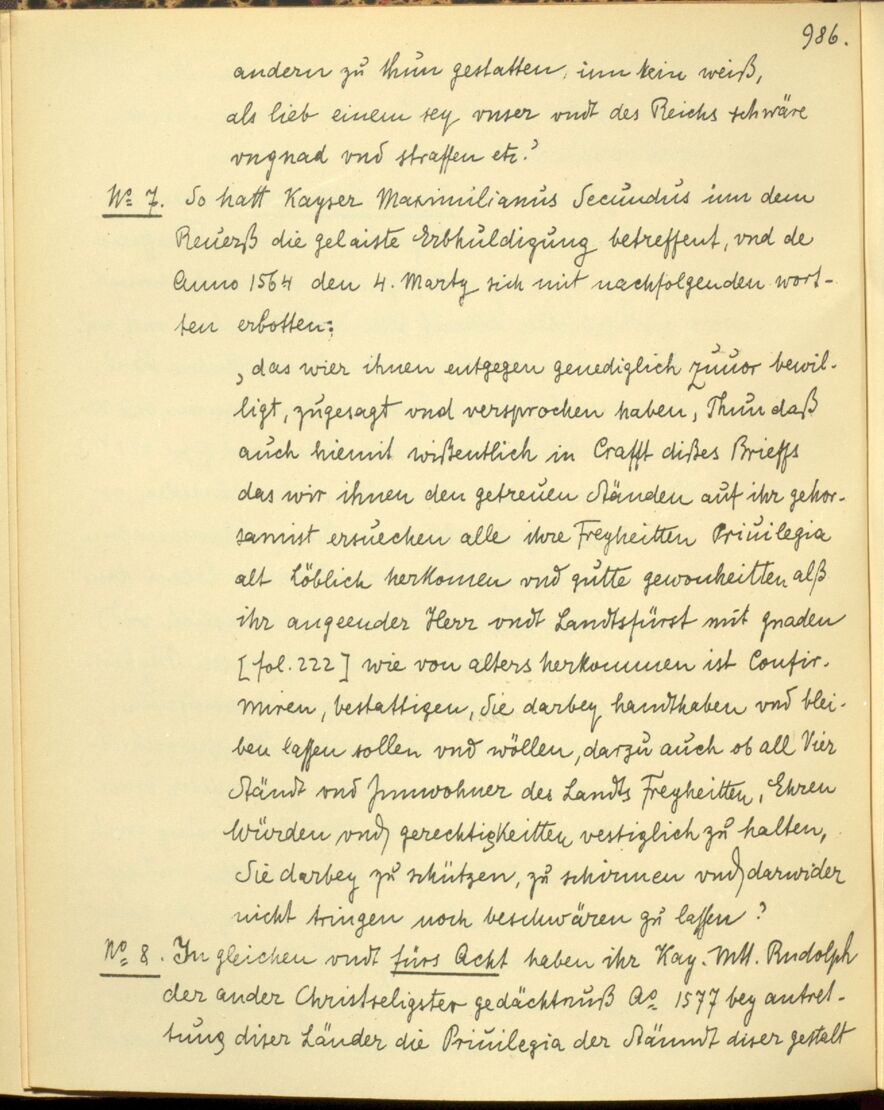 986.
andern zu thun gestatten, inn kein weiß,
als lieb einem sey vnser vndt des Reichs schwäre
vngnad vnd straffen etc.'
No 7. So hatt Kayser Maximilianus Secundus inn dem
Reuerß die gelaiste Erbhuldigung betreffent, vnd de
Anno 1564 den 4. Marty sich mit nachfolgenden wort-
ten erbotten:
‚das wier ihnen entgegen genediglich zuuor bewil-
ligt, zugesagt vnd versprochen haben, Thun daß
auch hiemit wißentlich in Crafft dißes Brieffs
das wir ihnen den getreuen Ständen auf ihr gehor-
samist ersuechen alle ihre Freyheitten Priuilegia
alt Löblich herkomen vnd gutte gewonheitten alß
ihr angeender Herr vndt Landtsfürst mit gnaden
[fol. 222] wie von alters herkommen ist Confir-
miren, bestattigen, Sie darbey handthaben vnd blei-
ben lassen sollen vnd wöllen, darzu auch ob all Vier
Ständt vnd Innwohner des Landts Freyheitten, Ehren
Würden vnd gerechtigkeitten vestiglich zu halten,
Sie darbey zu schützen, zu schirmen vnd darwider
nicht tringen noch beschwären zu lassen'
No 8. In gleichen vndt fürs Acht haben ihr Kay. Mtt. Rudolph
der ander Christseligster gedächtnuß Ao 1577 bey antret-
tung diser Länder die Priuilegia der Ständt diser gestalt